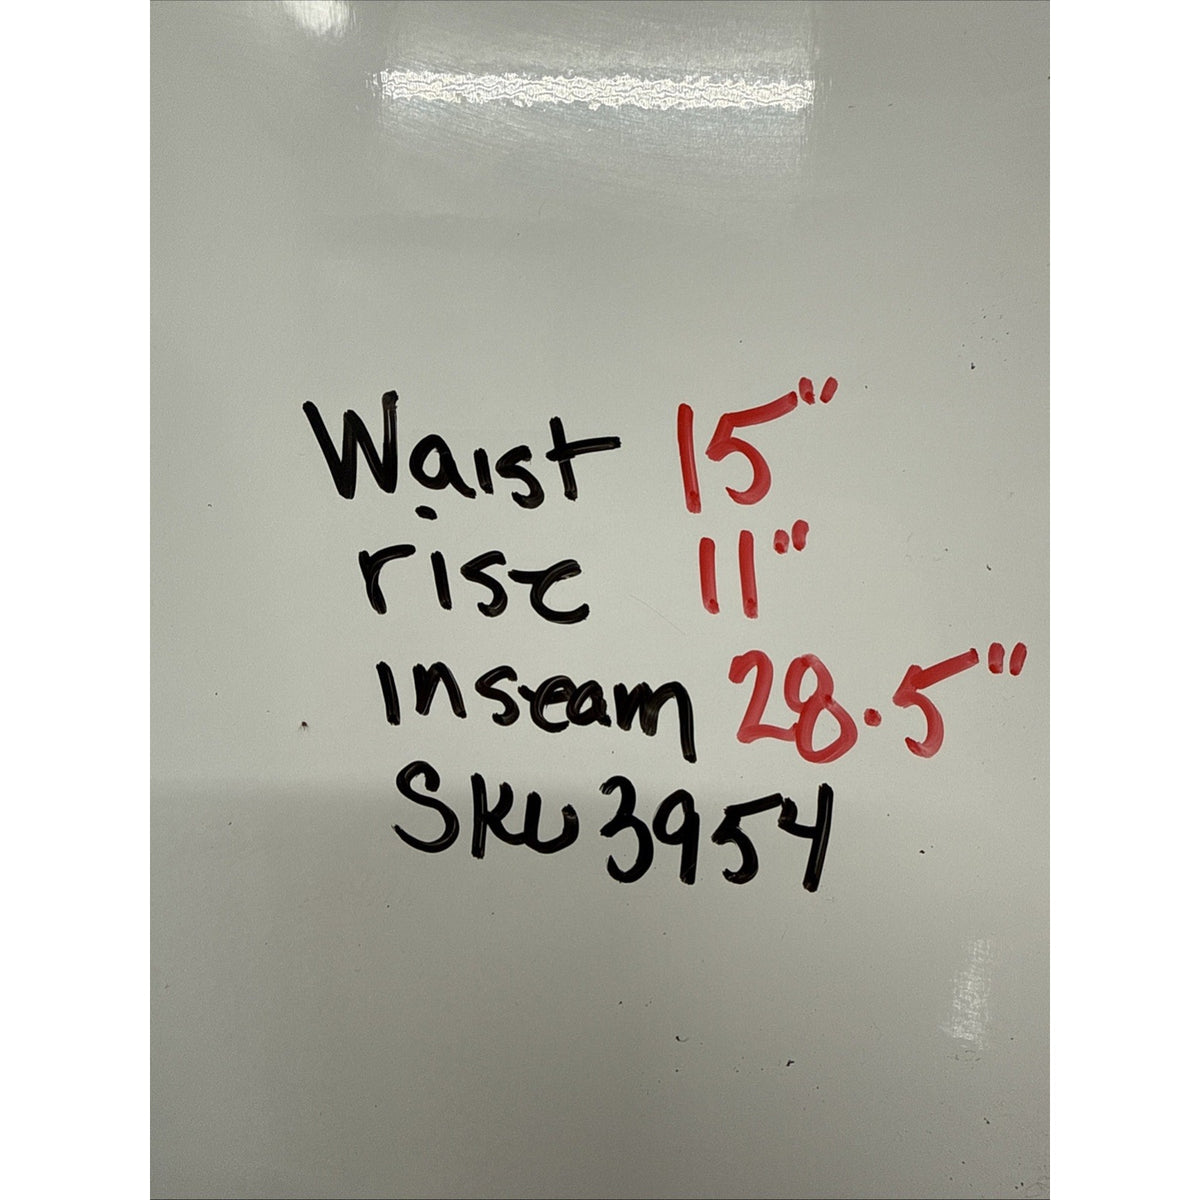 Waist 15"
rise 11"
inseam 28.5"
SKU 3954